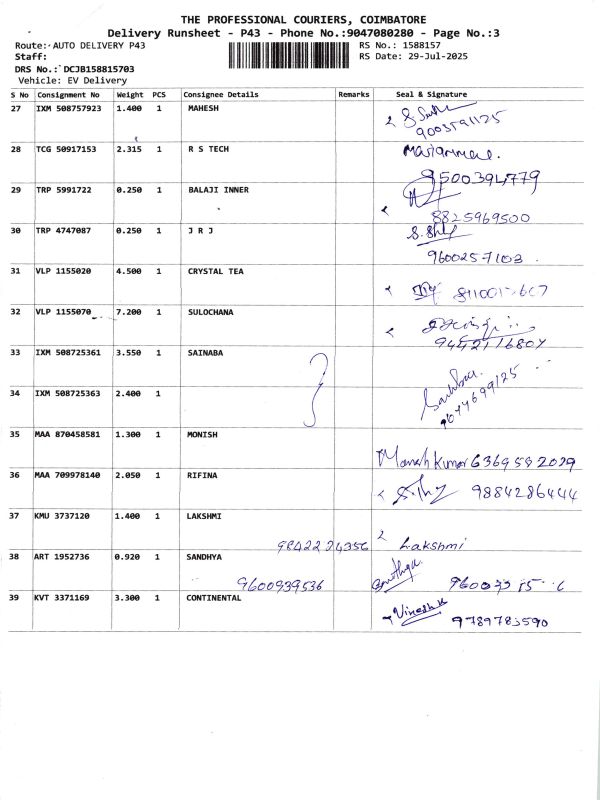 THE PROFESSIONAL COURIERS, COIMBATORE
Delivery Runsheet - P43 - Phone No.:9047080280 - Page No.:3
Route: AUTO DELIVERY P43 RS No.: 1588157
Staff: RS Date: 29-Jul-2025
DRS No.: DCJB158815703
Vehicle: EV Delivery
S No Consignment No Weight PCS Consignee Details Remarks Seal & Signature
27 IXM 508757923 1.400 1 MAHESH
9003591125
28 TCG 50917153 2.315 1 R S TECH
9500394779
29 TRP 5991722 0.250 1 BALAJI INNER
8825969500
30 TRP 4747087 0.250 1 J R J
9600257103
31 VLP 1155020 4.500 1 CRYSTAL TEA
32 VLP 1155070 7.200 1 SULOCHANA
33 IXM 508725361 3.550 1 SAINABA
34 IXM 508725363 2.400 1
35 MAA 870458581 1.300 1 MONISH
Manesh Kumar
36 MAA 709978140 2.050 1 RIFINA
9884286444
37 KMU 3737120 1.400 1 LAKSHMI
Lakshmi
38 ART 1952736 0.920 1 SANDHYA
9600939536
39 KVT 3371169 3.300 1 CONTINENTAL
Vinesh K
9789783590